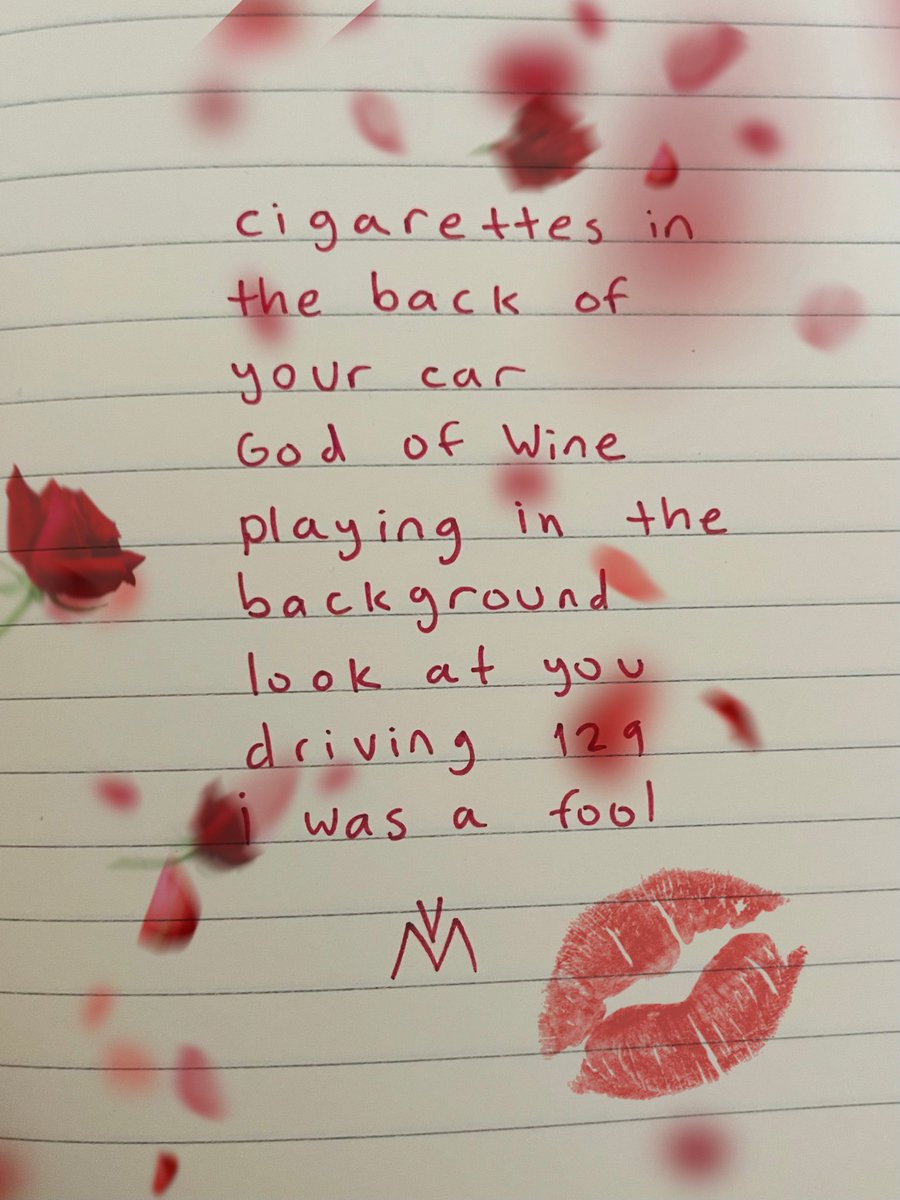 cigarettes in
the back of
your car
God of Wine
playing in the
background
look at you
driving 129
i was a fool